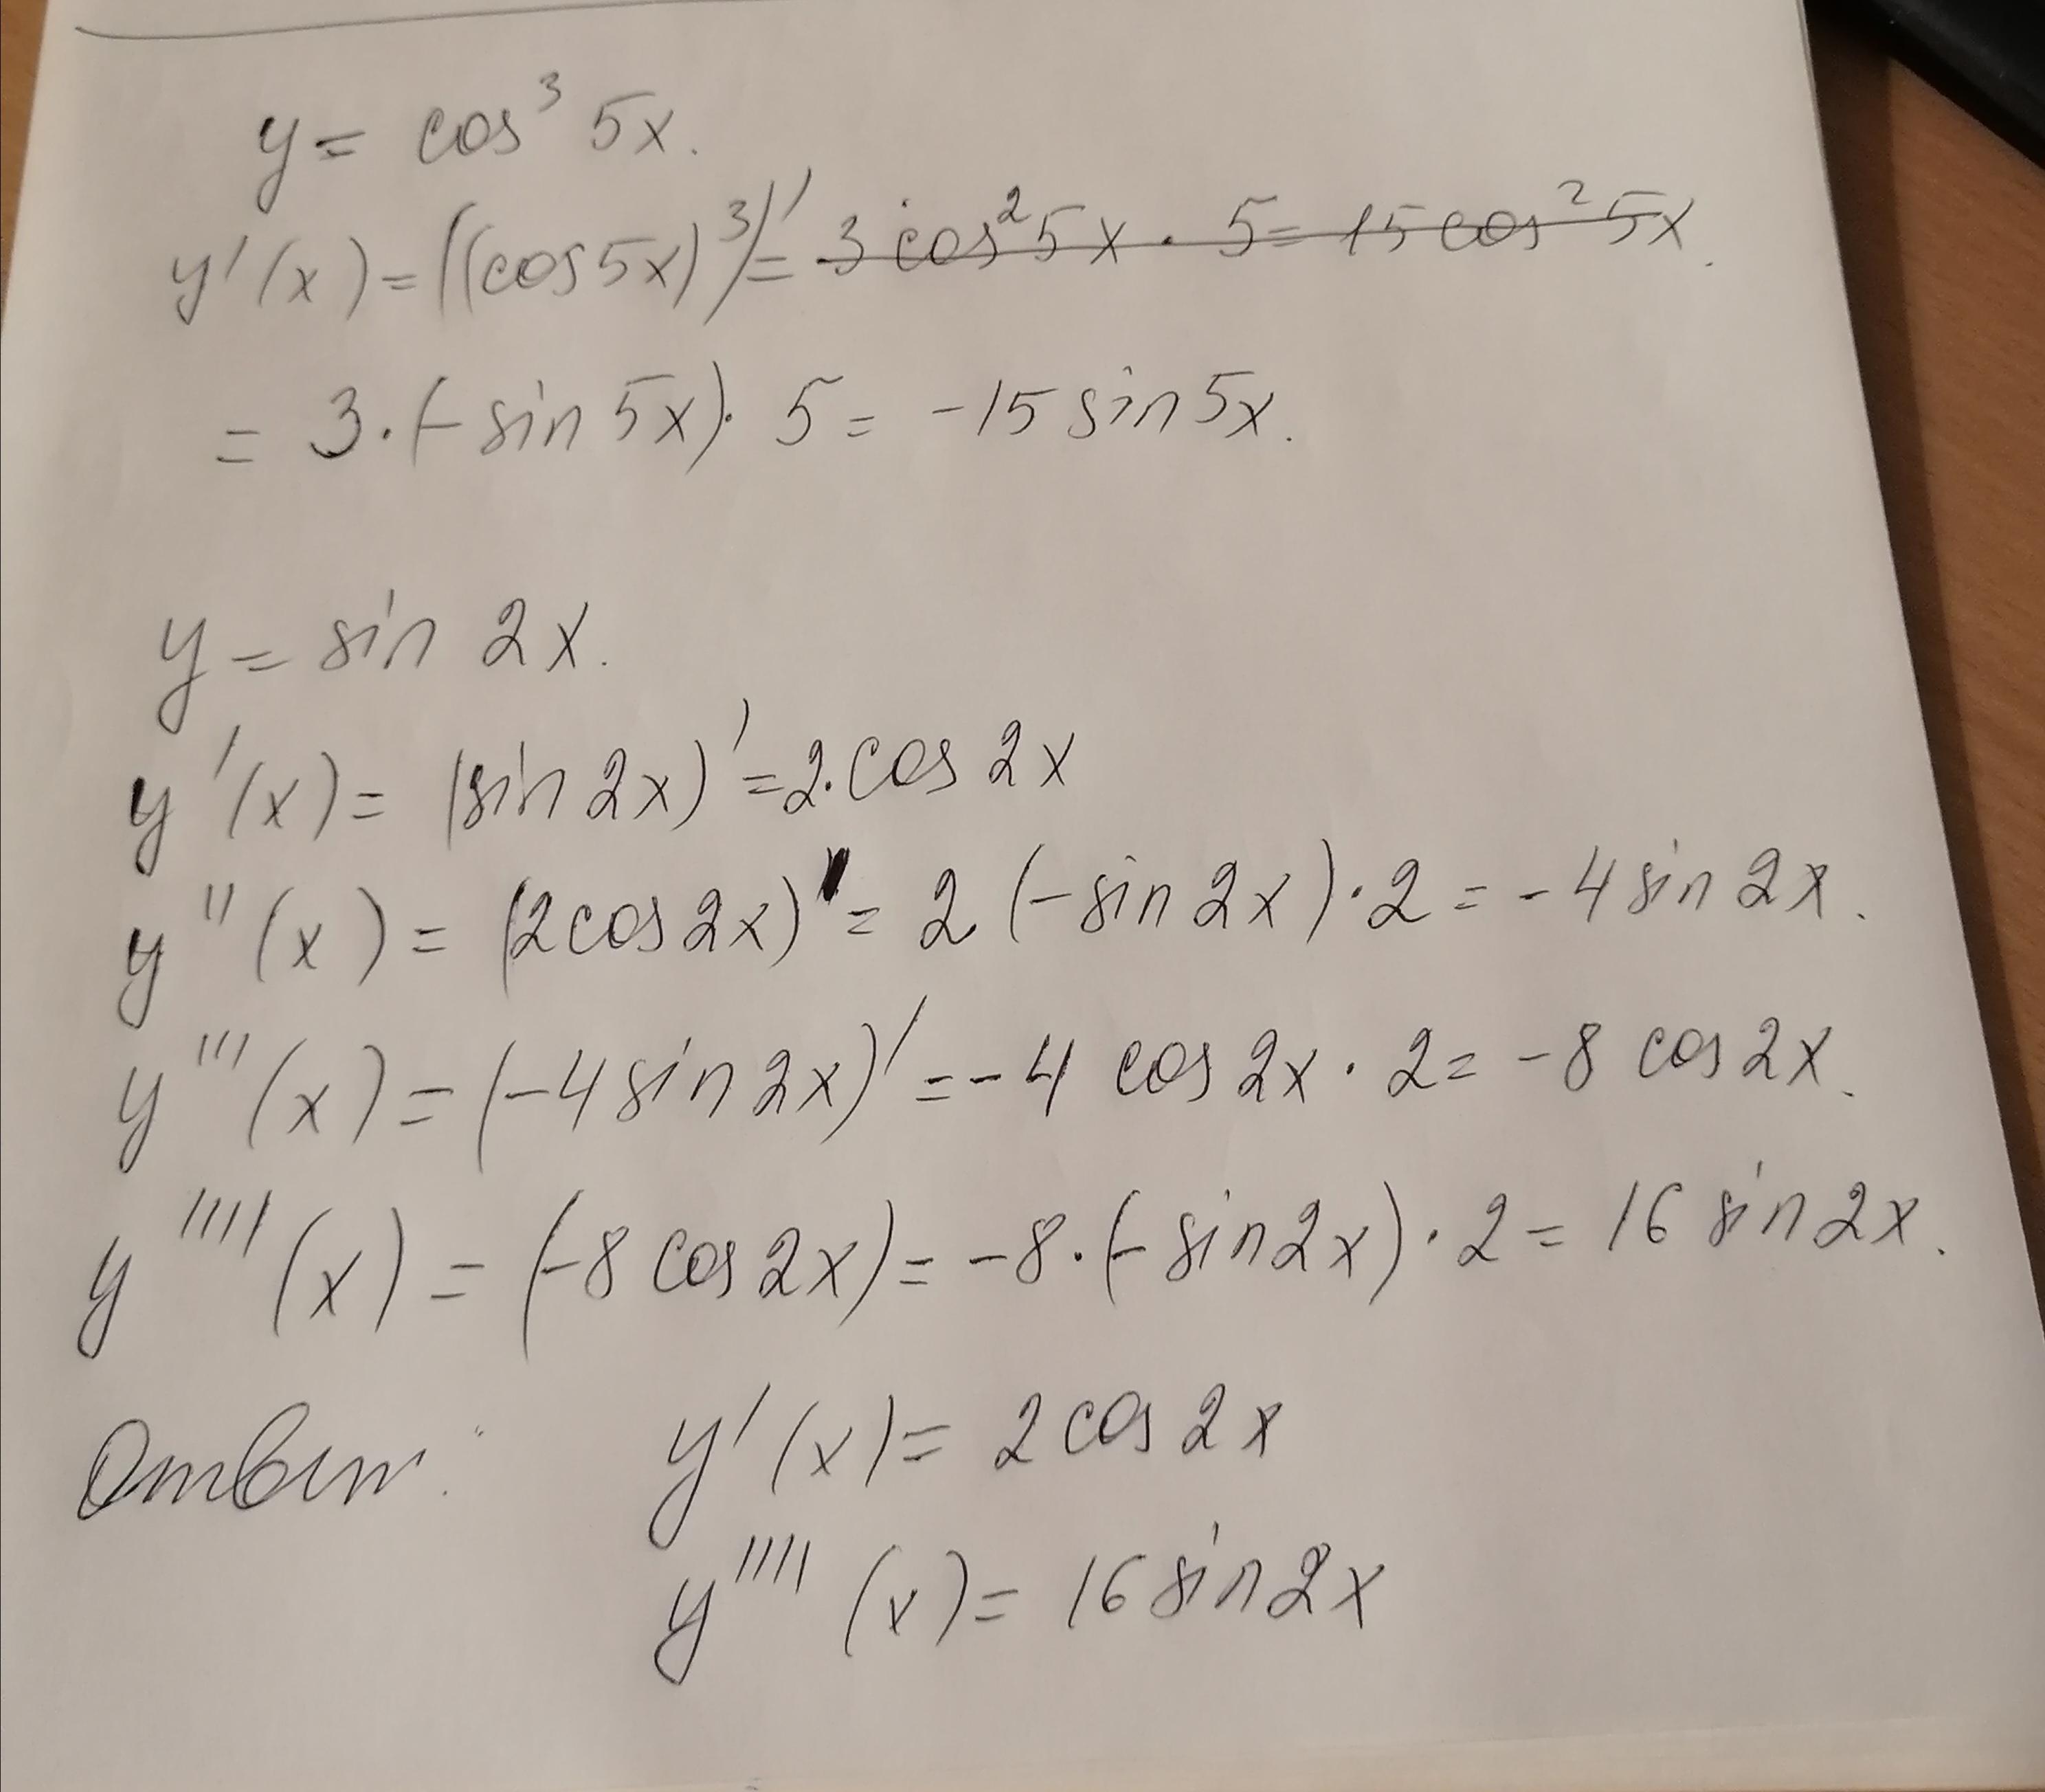 y = cos³ 5x.
y'(x) = ((cos 5x)³)' = 3 cos² 5x · 5 = 15 cos² 5x.
= 3 · (- sin 5x) · 5 = -15 sin 5x.
y = sin 2x.
y'(x) = (sin 2x)' = 2 · cos 2x
y''(x) = (2 cos 2x)' = 2 (- sin 2x) · 2 = - 4 sin 2x.
y'''(x) = (-4 sin 2x)' = - 4 cos 2x · 2 = - 8 cos 2x.
y''''(x) = (-8 cos 2x) = -8 · (- sin 2x) · 2 = 16 sin 2x.
Ответ: y'(x) = 2 cos 2x
y''''(x) = 16 sin 2x